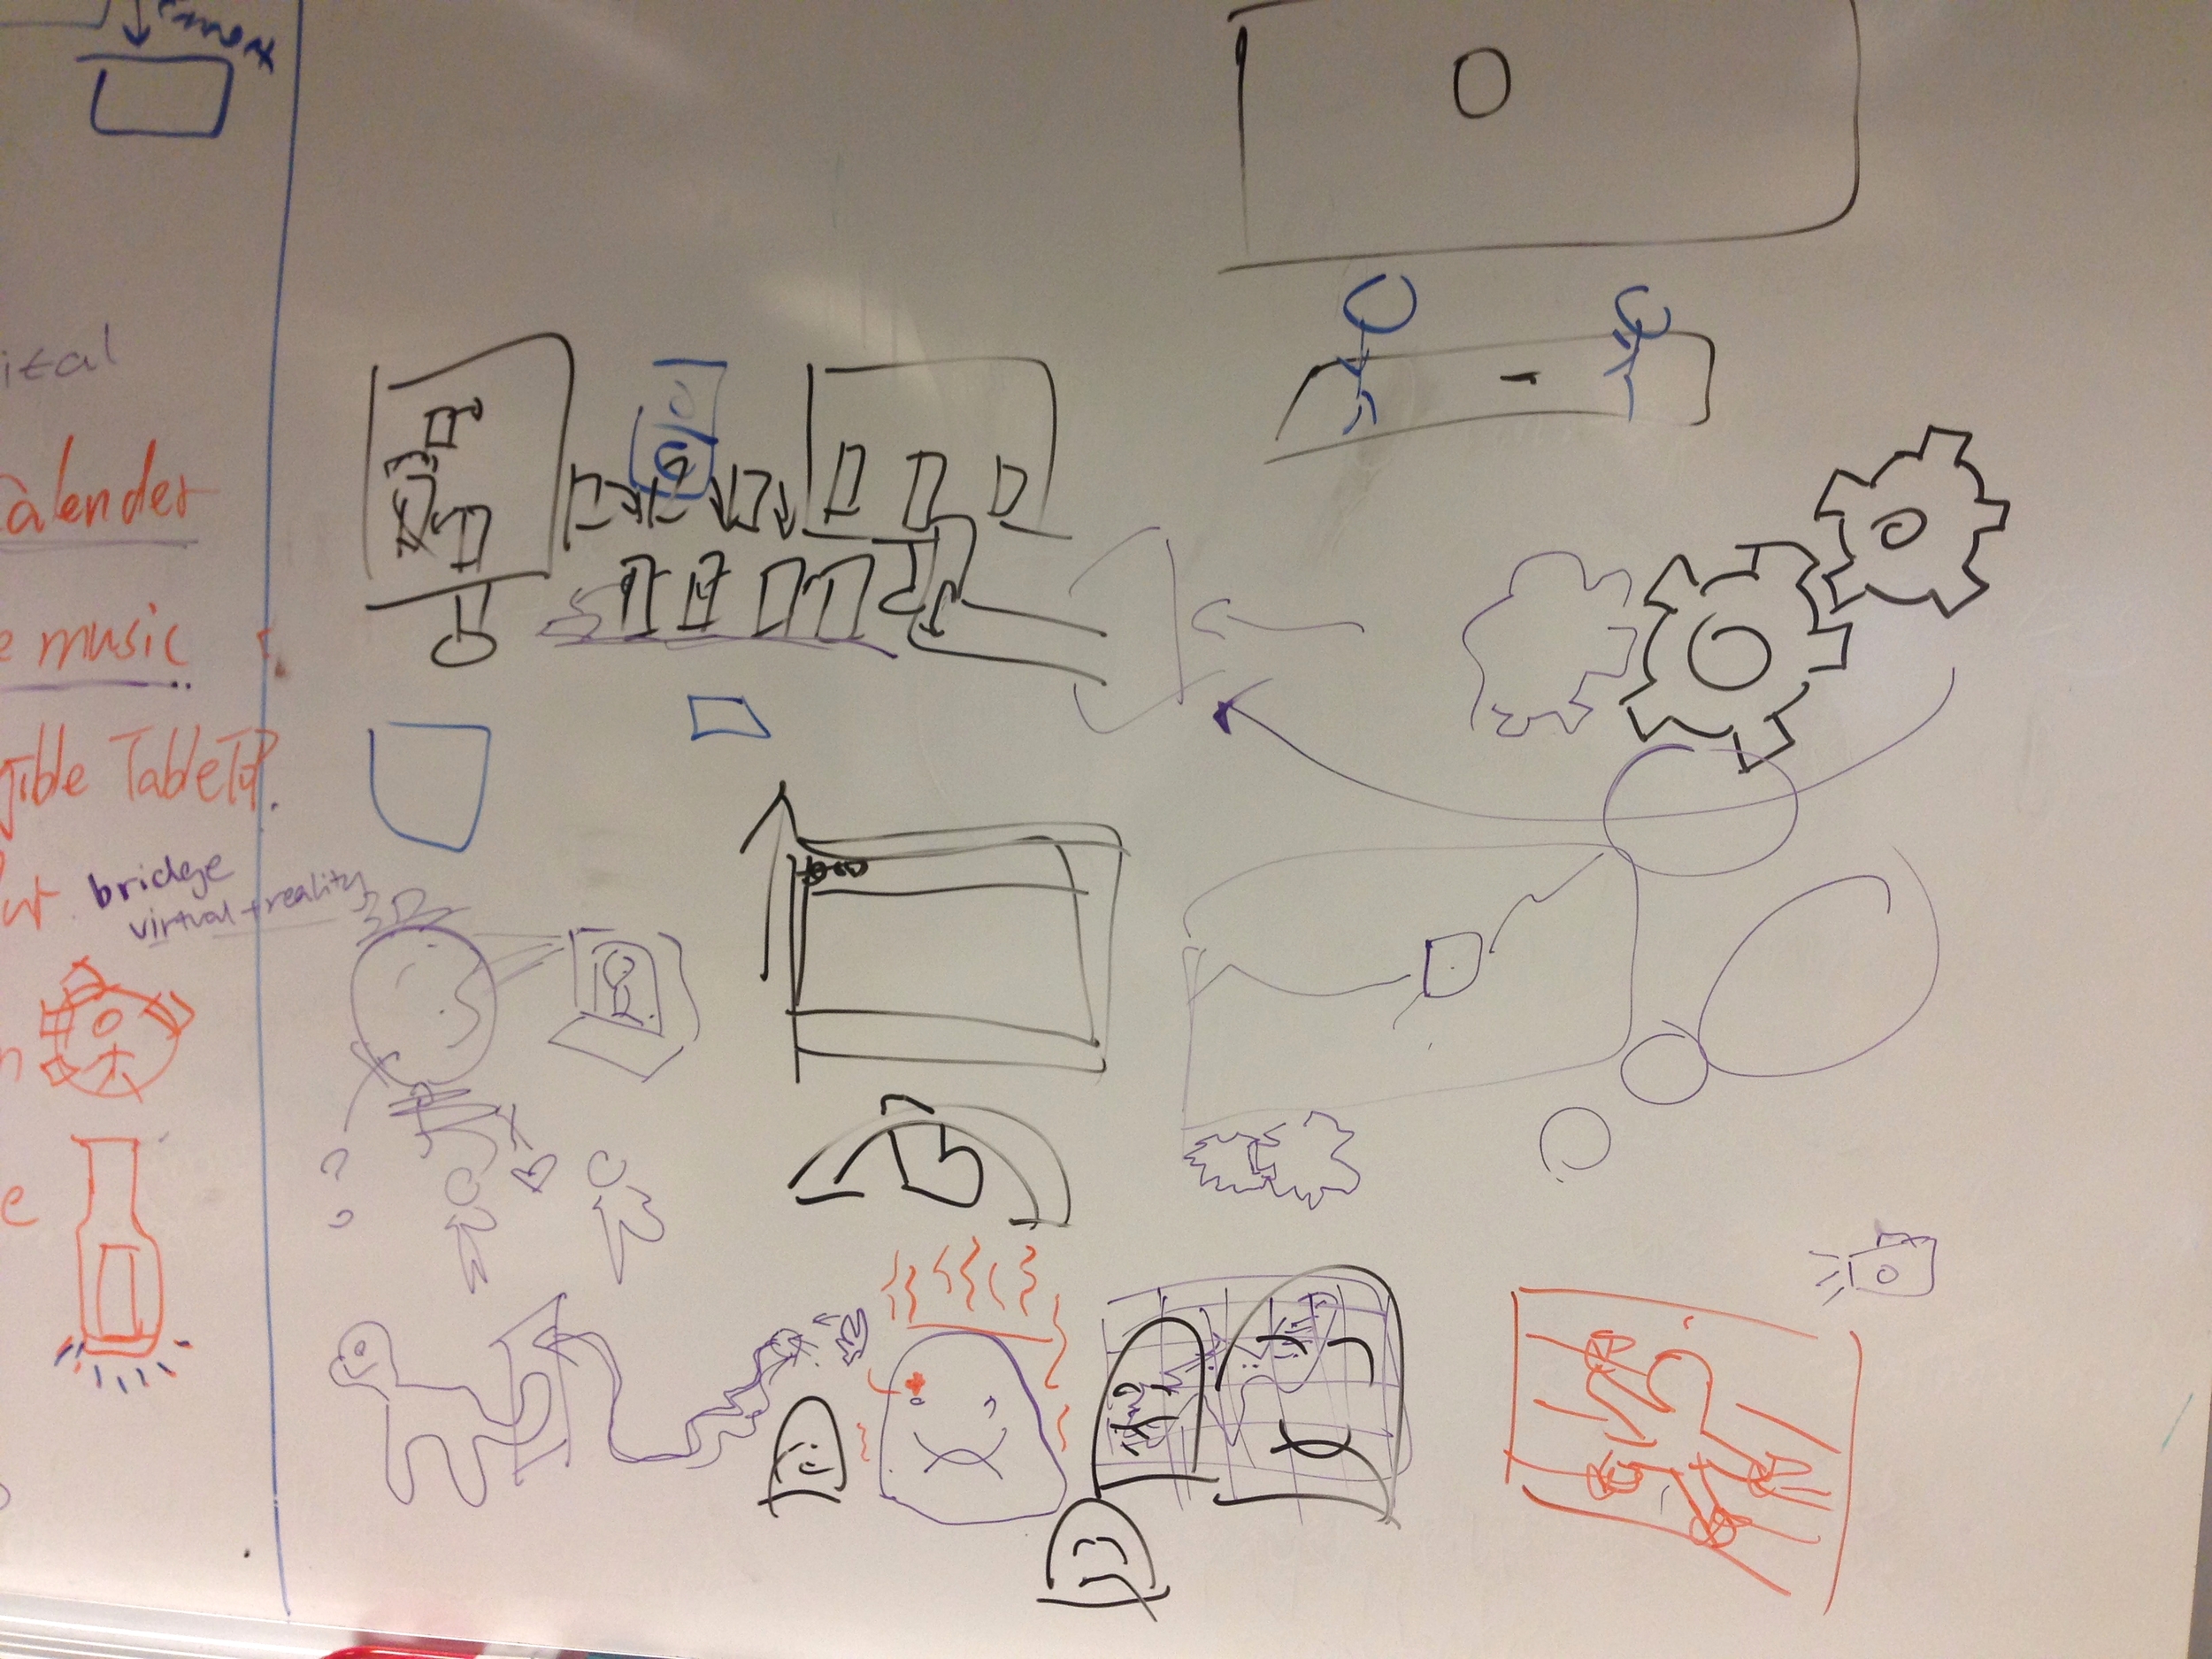 ital
Calender
e music
gible TableTop.
bridge
virtual + reality
n
e
?